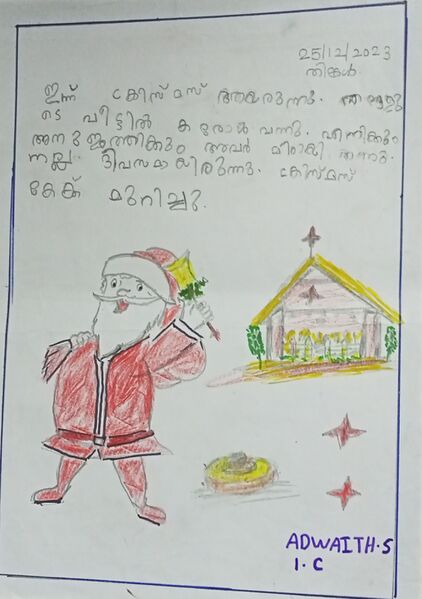 25/12/2023
തിങ്കൾ.
ഇന്ന് ക്രിസ്മസ് ആയരുന്നു. ഞങ്ങളു
ടെ വീട്ടിൽ കരോൾ വന്നു. എനിക്കും
അനുജത്തിക്കും അവർ മിഠായി തന്നു.
നല്ല ദിവസമായിരുന്നു. ക്രിസ്മസ്
കേക്ക് മുറിച്ചു.
ADWAITH.S
1.C